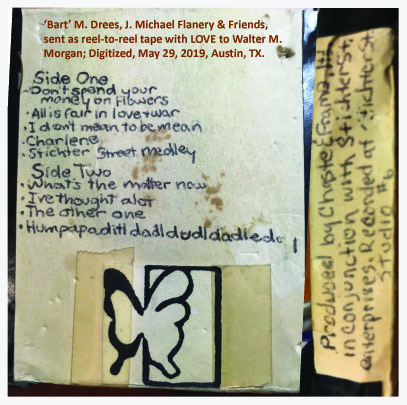 ‘Bart’ M. Drees, J. Michael Flanery & Friends,
sent as reel-to-reel tape with LOVE to Walter M.
Morgan; Digitized, May 29, 2019, Austin, TX.
Side One
• Don't spend your
money on flowers
• All is fair in love + war
• I don't mean to be mean
• Charlene
• Stichter Street medley
Side Two
• What's the matter now
• I've thought alot
• The other one
• Humpapaditldadldudldadle
Produced by Christie & Frame, 
in conjunction with Stichterst.
enterprises. Recorded at Stichterst.
Studio #6